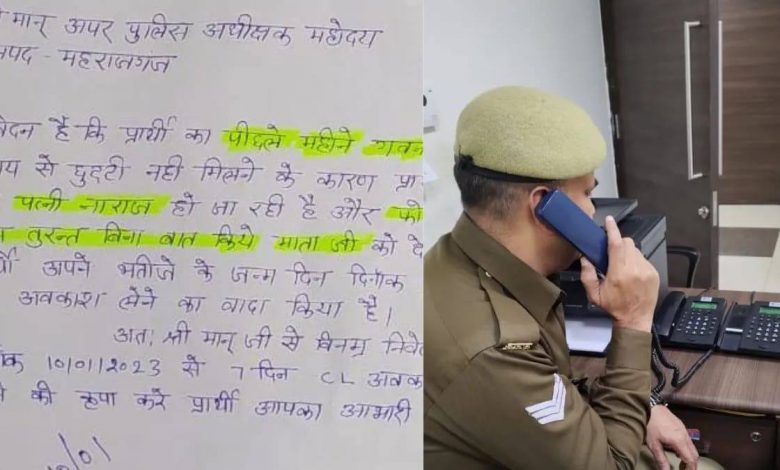 मान् अपर पुलिस अधीक्षक महोदय
पद - महराजगंज
है कि प्रार्थी का पीछले महीने
से छुट्टी नही मिलने के कारण
पत्नी नाराज हो जा रही है और
तुरन्त बिना बात किये माता जी को
अपने भतीजे के जन्म दिन दिनांक
अवकाश लेने का वादा किया है।
अतः श्री मान् जी से विनम्र
10/01/2023 से 7 दिन CL
की कृपा करे प्रार्थी आपका आभारी